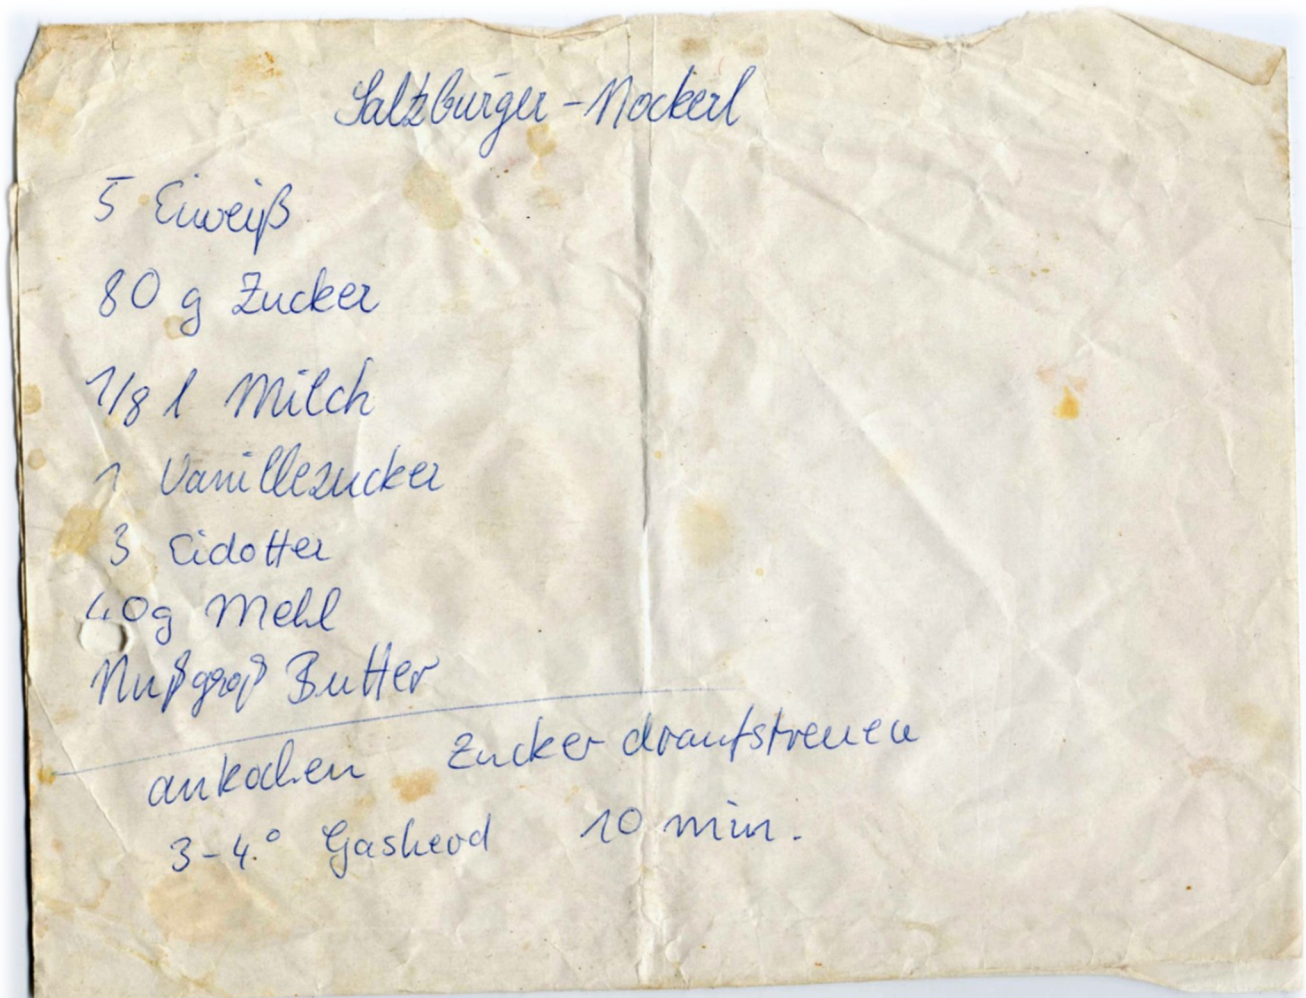 Salzburger-Nockerl
5 Eiweiß
80 g Zucker
1/8 l Milch
1 Vanillezucker
3 Eidotter
40g Mehl
Nußgroß Butter
ankochen Zucker draufstreuen
3-4° Gasherd 10 min.